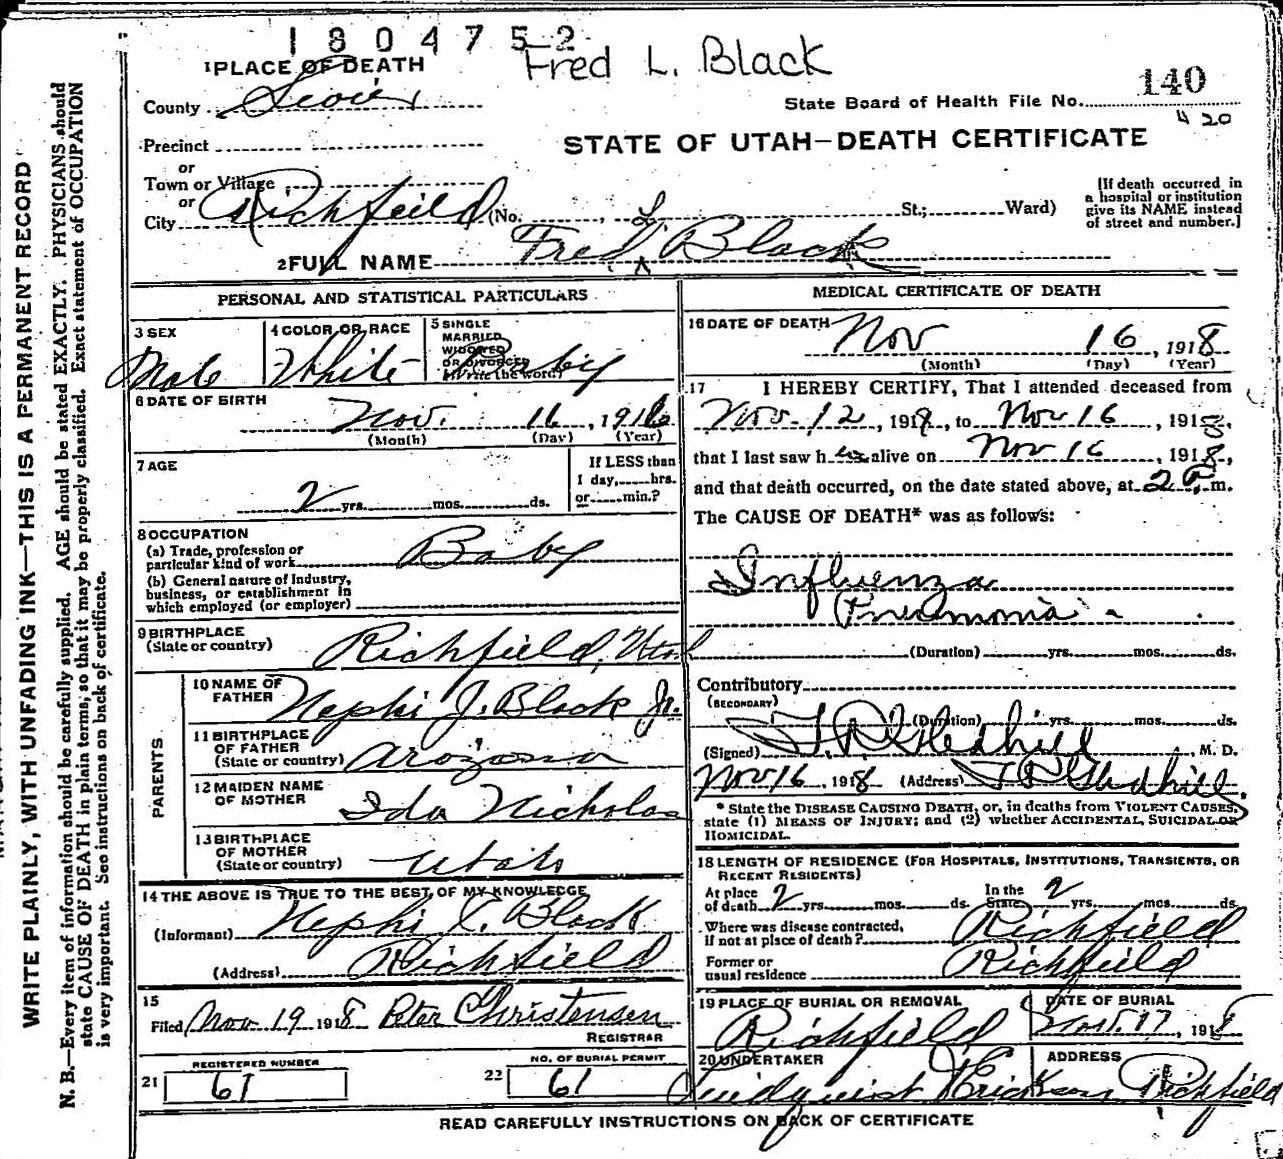 1804752
Fred L. Black
1 PLACE OF DEATH
140
County Sevier
State Board of Health File No.
4 20
Precinct
STATE OF UTAH—DEATH CERTIFICATE
or
Town or Village
or
City Richfeild (No. , St.; Ward)
[If death occurred in
a hospital or institution
give its NAME instead
of street and number.]
L
2 FULL NAME Fred ^ Black
PERSONAL AND STATISTICAL PARTICULARS
3 SEX
Male
4 COLOR OR RACE
White
5 SINGLE
MARRIED
WIDOWED
OR DIVORCED
(Write the word)
Baby
6 DATE OF BIRTH
Nov. 16, 1916
(Month) (Day) (Year)
7 AGE
2 yrs. mos. ds.
If LESS than
1 day, hrs.
or min.?
8 OCCUPATION
(a) Trade, profession or
particular kind of work Baby
(b) General nature of Industry,
business, or establishment in
which employed (or employer)
9 BIRTHPLACE
(State or country) Richfield, Utah
PARENTS
10 NAME OF
FATHER Nephi J. Black Jr.
11 BIRTHPLACE
OF FATHER
(State or country) Arozona
12 MAIDEN NAME
OF MOTHER Ida Nicholas
13 BIRTHPLACE
OF MOTHER
(State or country) Utah
14 THE ABOVE IS TRUE TO THE BEST OF MY KNOWLEDGE
(Informant) Nephi Black
(Address) Richfield
15
Filed Nov 19 1918 Peter Christensen
REGISTRAR
REGISTERED NUMBER
21 61
NO. OF BURIAL PERMIT
22 61
MEDICAL CERTIFICATE OF DEATH
16 DATE OF DEATH
Nov 16, 1918
(Month) (Day) (Year)
17 I HEREBY CERTIFY, That I attended deceased from
Nov. 12, 1918, to Nov 16, 1918,
that I last saw h alive on Nov 16, 1918,
and that death occurred, on the date stated above, at 2 P. m.
The CAUSE OF DEATH* was as follows:
Influenza
Pneumonia
(Duration) yrs. mos. ds.
Contributory
(SECONDARY)
(Duration) yrs. mos. ds.
(Signed) T. R. Gledhill, M. D.
Nov 16, 1918 (Address) T R Gledhill
* State the DISEASE CAUSING DEATH, or, in deaths from VIOLENT CAUSES,
state (1) MEANS OF INJURY; and (2) whether ACCIDENTAL, SUICIDAL OR
HOMICIDAL.
18 LENGTH OF RESIDENCE (FOR HOSPITALS, INSTITUTIONS, TRANSIENTS, OR
RECENT RESIDENTS)
At place
of death 2 yrs. mos. ds.
In the
State 2 yrs. mos. ds.
Where was disease contracted,
if not at place of death? Richfield
Former or
usual residence Richfield
19 PLACE OF BURIAL OR REMOVAL
Richfield
DATE OF BURIAL
Nov. 17, 1918
20 UNDERTAKER
Lundquist Erickson
ADDRESS
Richfield
READ CAREFULLY INSTRUCTIONS ON BACK OF CERTIFICATE
WRITE PLAINLY, WITH UNFADING INK—THIS IS A PERMANENT RECORD
N. B.—Every item of information should be carefully supplied. AGE should be stated EXACTLY. PHYSICIANS should
state CAUSE OF DEATH in plain terms, so that it may be properly classified. Exact statement of OCCUPATION
is very important. See instructions on back of certificate.